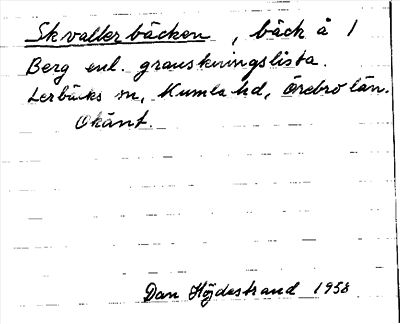 Skvallerbäcken, bäck å 1
Berg enl. granskningslista.
Lerbäcks sn, Kumla hd, Örebro län.
Okänt.
Dan Höjdestrand 1958